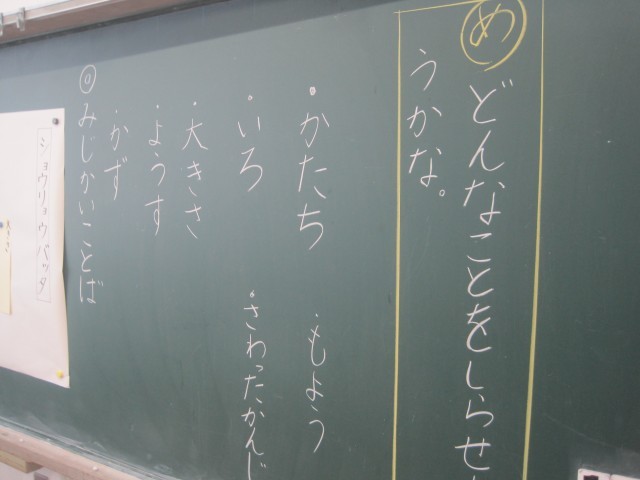 め
どんなことをしらせ
うかな。
・かたち
・もよう
・いろ
・さわったかんじ
・大きさ
・ようす
・かず
◎みじかいことば
ショウリョウバッタ